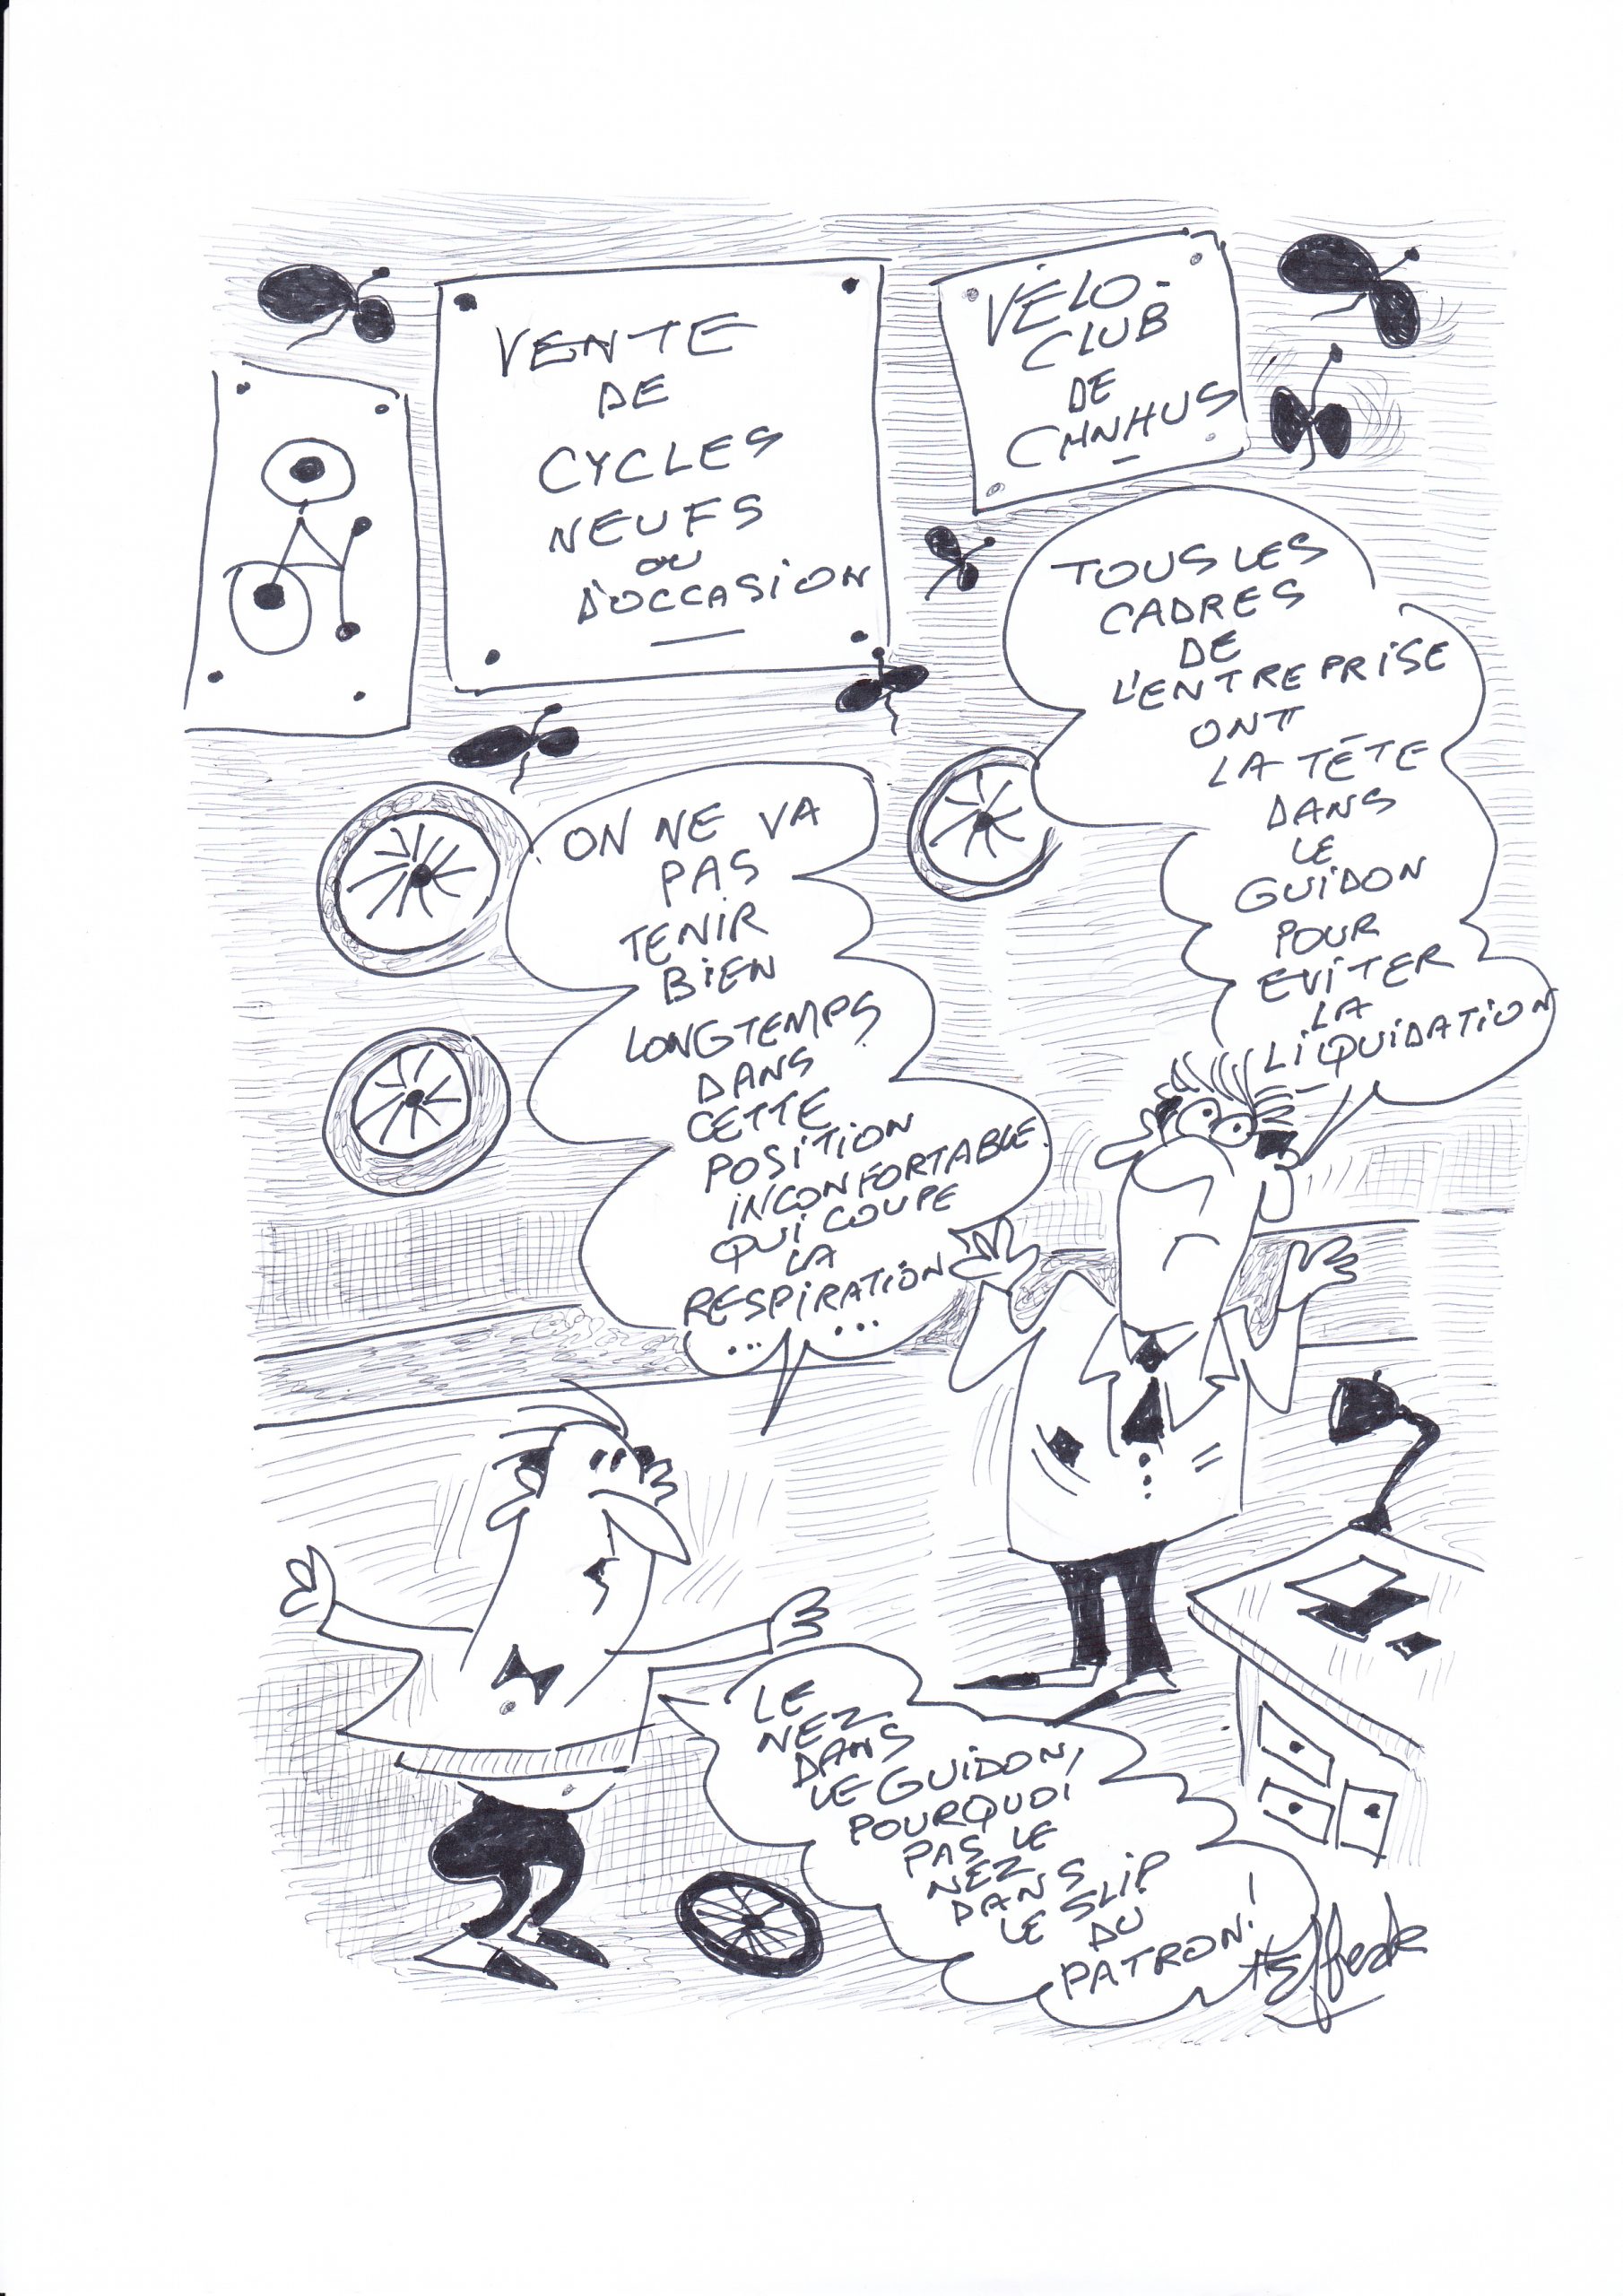 VENTE
DE
CYCLES
NEUFS
OU
D'OCCASION
VÉLO-
CLUB
DE
CHNHUS
TOUS LES
CADRES
DE
L'ENTREPRISE
ONT
LA TÊTE
DANS
LE
GUIDON
POUR
EVITER
LA
LIQUIDATION
ON NE VA
PAS
TENIR
BIEN
LONGTEMPS
DANS
CETTE
POSITION
INCONFORTABLE
QUI COUPE
LA
RESPIRATION
... ...
LE
NEZ
DANS
LE GUIDON,
POURQUOI
PAS LE
NEZ
DANS
LE SLIP
DU
PATRON!